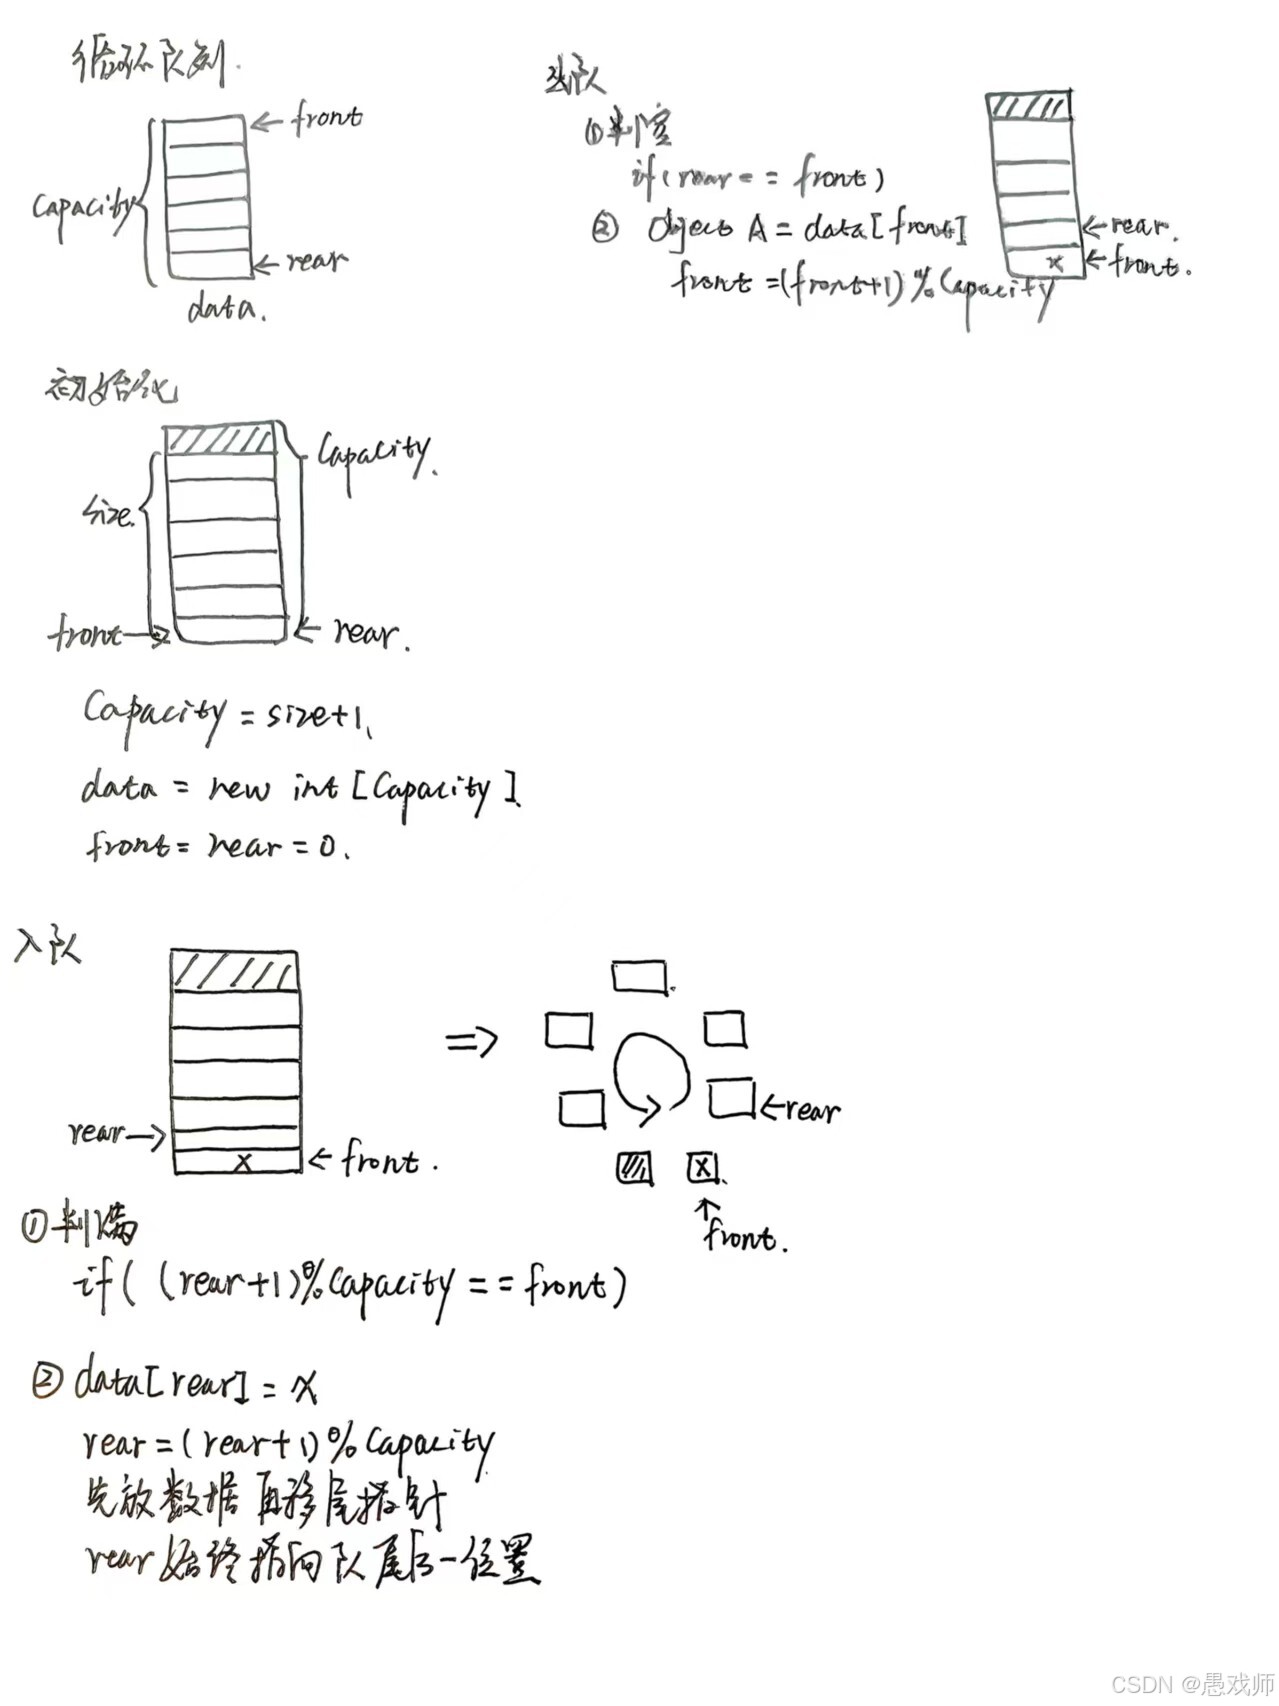 循环队列.
← front
Capacity
← rear
data.
出队
①判空
if(rear == front)
② Object A = data[front]
front =(front+1)%Capacity
← rear.
x ← front.
初始化
Capacity.
size.
front→
← rear.
Capacity = size+1.
data = new int [Capacity].
front = rear = 0.
入队
⇒
rear→
x ← front.
← rear
x
↑
front.
①判满
if( (rear+1)%Capacity == front)
② data[rear] = x
rear = (rear+1)%Capacity
先放数据 再移尾指针
rear始终指向队尾后一位置
CSDN @愚戏师